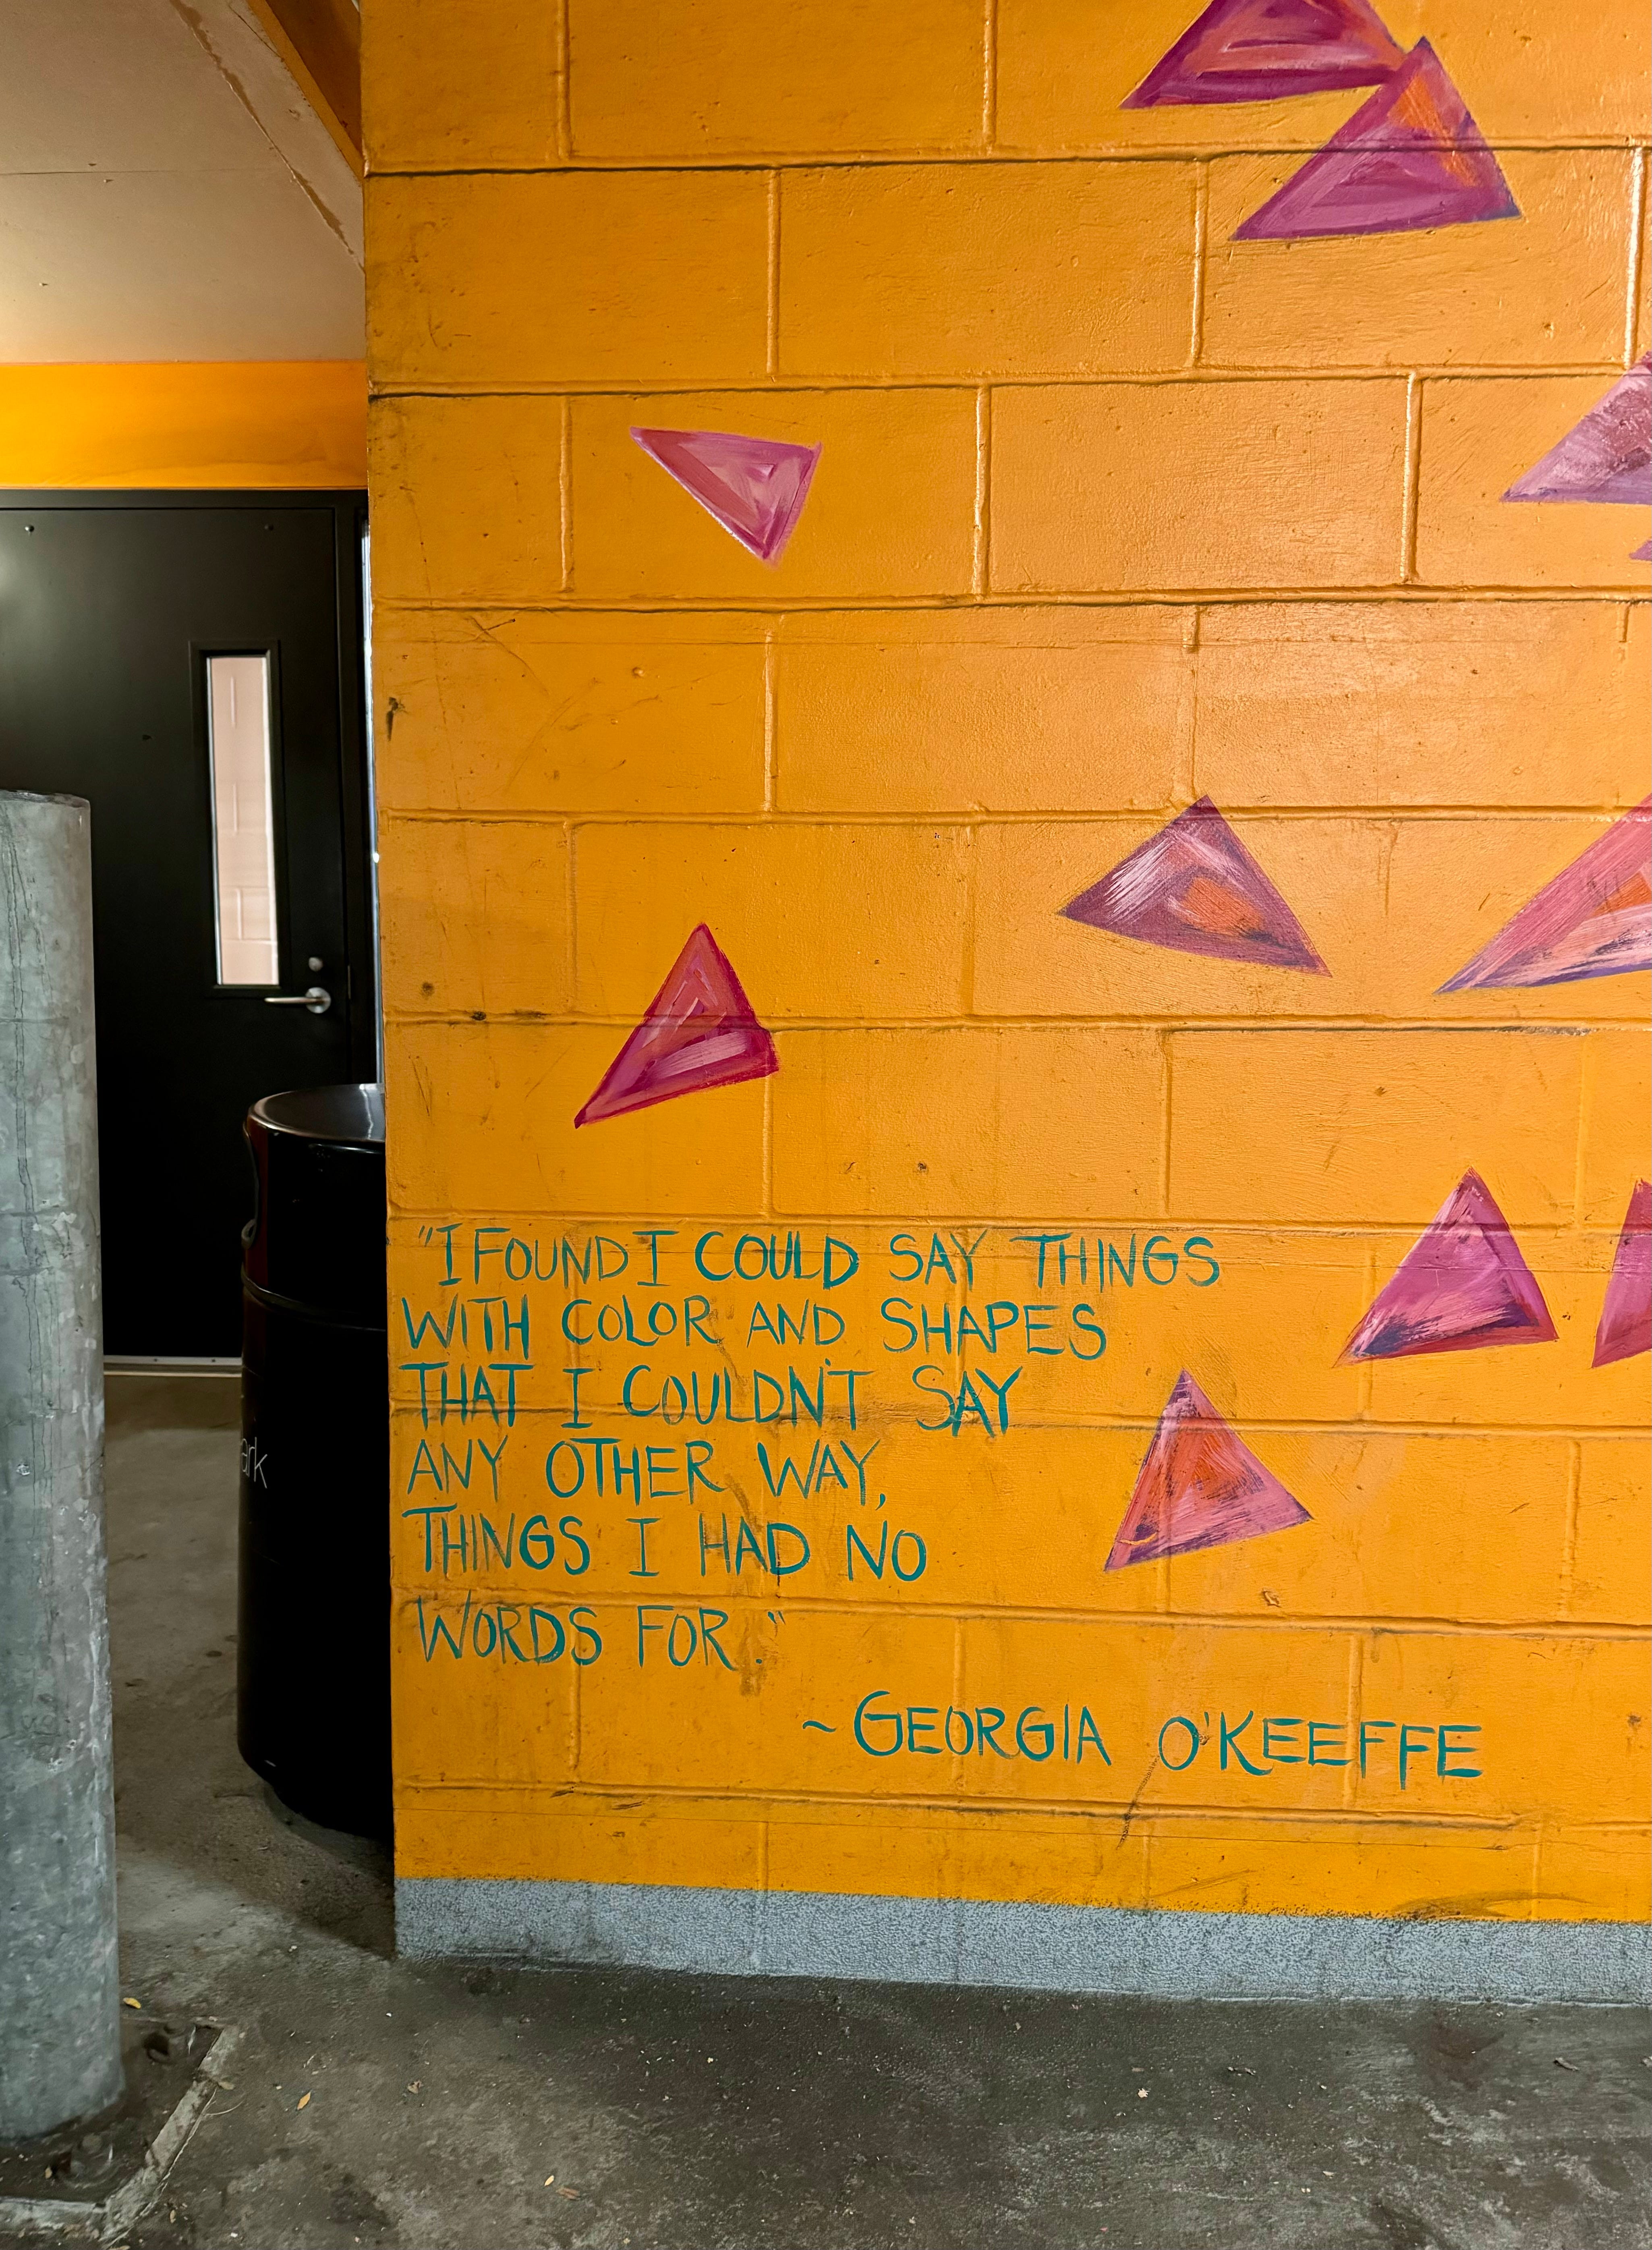 "I FOUND I COULD SAY THINGS
WITH COLOR AND SHAPES
THAT I COULDN'T SAY
ANY OTHER WAY,
THINGS I HAD NO
WORDS FOR."
~ GEORGIA O'KEEFFE
ark